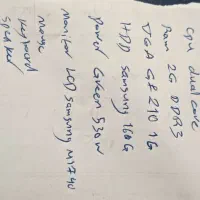 CPU dual core
Ram 2G DDR3
VGA GF210 1G
HDD Samsung 160G
Power Green 530W
Monitor LCD Samsung
Mouse
Keyboard
Speaker